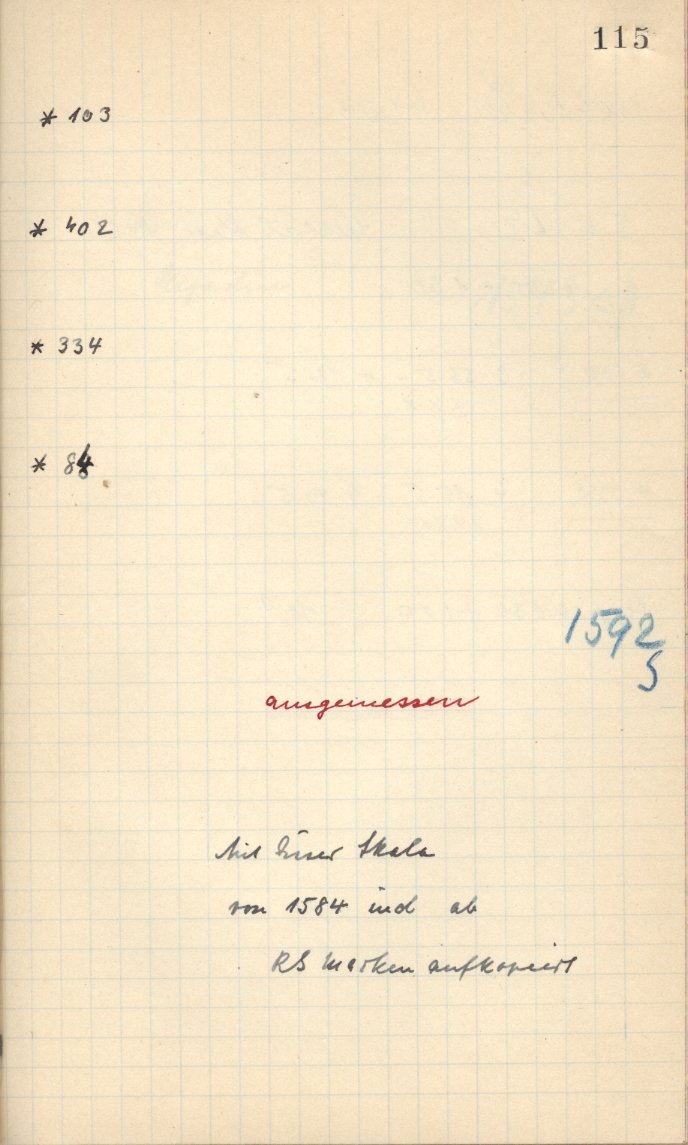 115
* 103
* 402
* 334
* 84
1592
S
ausgemessen
Mit dieser Skala
von 1584 incl ab
RS Marken aufkopiert